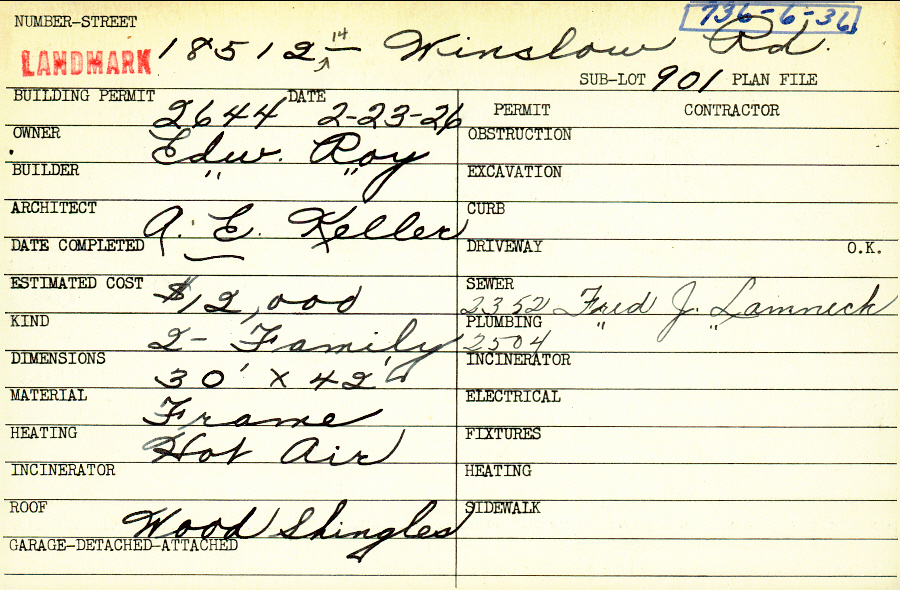 736-6-36
NUMBER-STREET
LANDMARK 18512 14 Winslow Rd.
SUB-LOT 901 PLAN FILE
BUILDING PERMIT 2644 DATE 2-23-26
PERMIT CONTRACTOR
OWNER Edw. Roy
OBSTRUCTION
BUILDER " "
EXCAVATION
ARCHITECT A. E. Keller
CURB
DATE COMPLETED
DRIVEWAY O.K.
ESTIMATED COST $12,000
SEWER 2352 Fred J. Lamneck
KIND 2-Family
PLUMBING 2504 " "
DIMENSIONS 30' x 42'
INCINERATOR
MATERIAL Frame
ELECTRICAL
HEATING Hot Air
FIXTURES
INCINERATOR
HEATING
ROOF Wood Shingles
SIDEWALK
GARAGE-DETACHED-ATTACHED